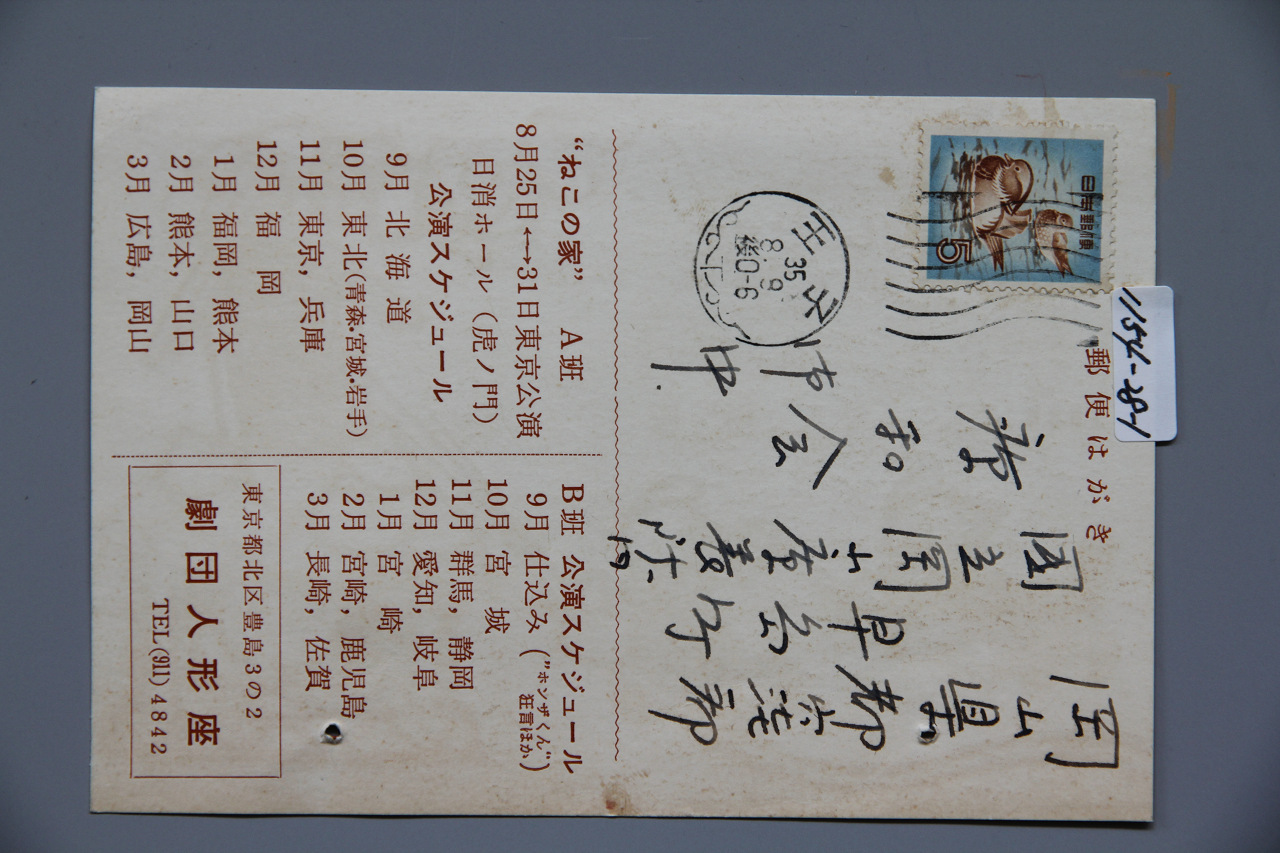 郵便はがき
日本郵便
5
1154-28-1
王子
35
8.9
後0-6
岡山県都
國立岡
療
"ねこの家" A班
8月25日←→31日東京公演
日消ホール(虎ノ門)
公演スケジュール
9月 北海道
10月 東北(青森・宮城・岩手)
11月 東京,兵庫
12月 福岡
1月 福岡,熊本
2月 熊本,山口
3月 広島,岡山
B班 公演スケジュール
9月 仕込み("ホンザくん"狂言ほか)
10月 宮城
11月 群馬,静岡
12月 愛知,岐阜
1月 宮崎
2月 宮崎,鹿児島
3月 長崎,佐賀
東京都北区豊島3の2
劇団人形座
TEL(911)4842